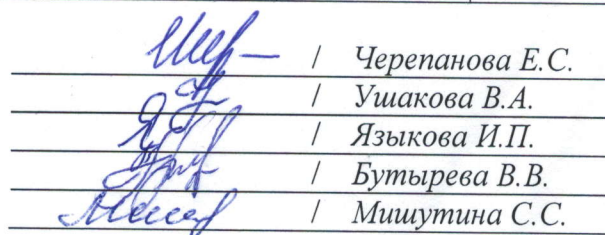 / Черепанова Е.С.
/ Ушакова В.А.
/ Языкова И.П.
/ Бутырева В.В.
/ Мишутина С.С.